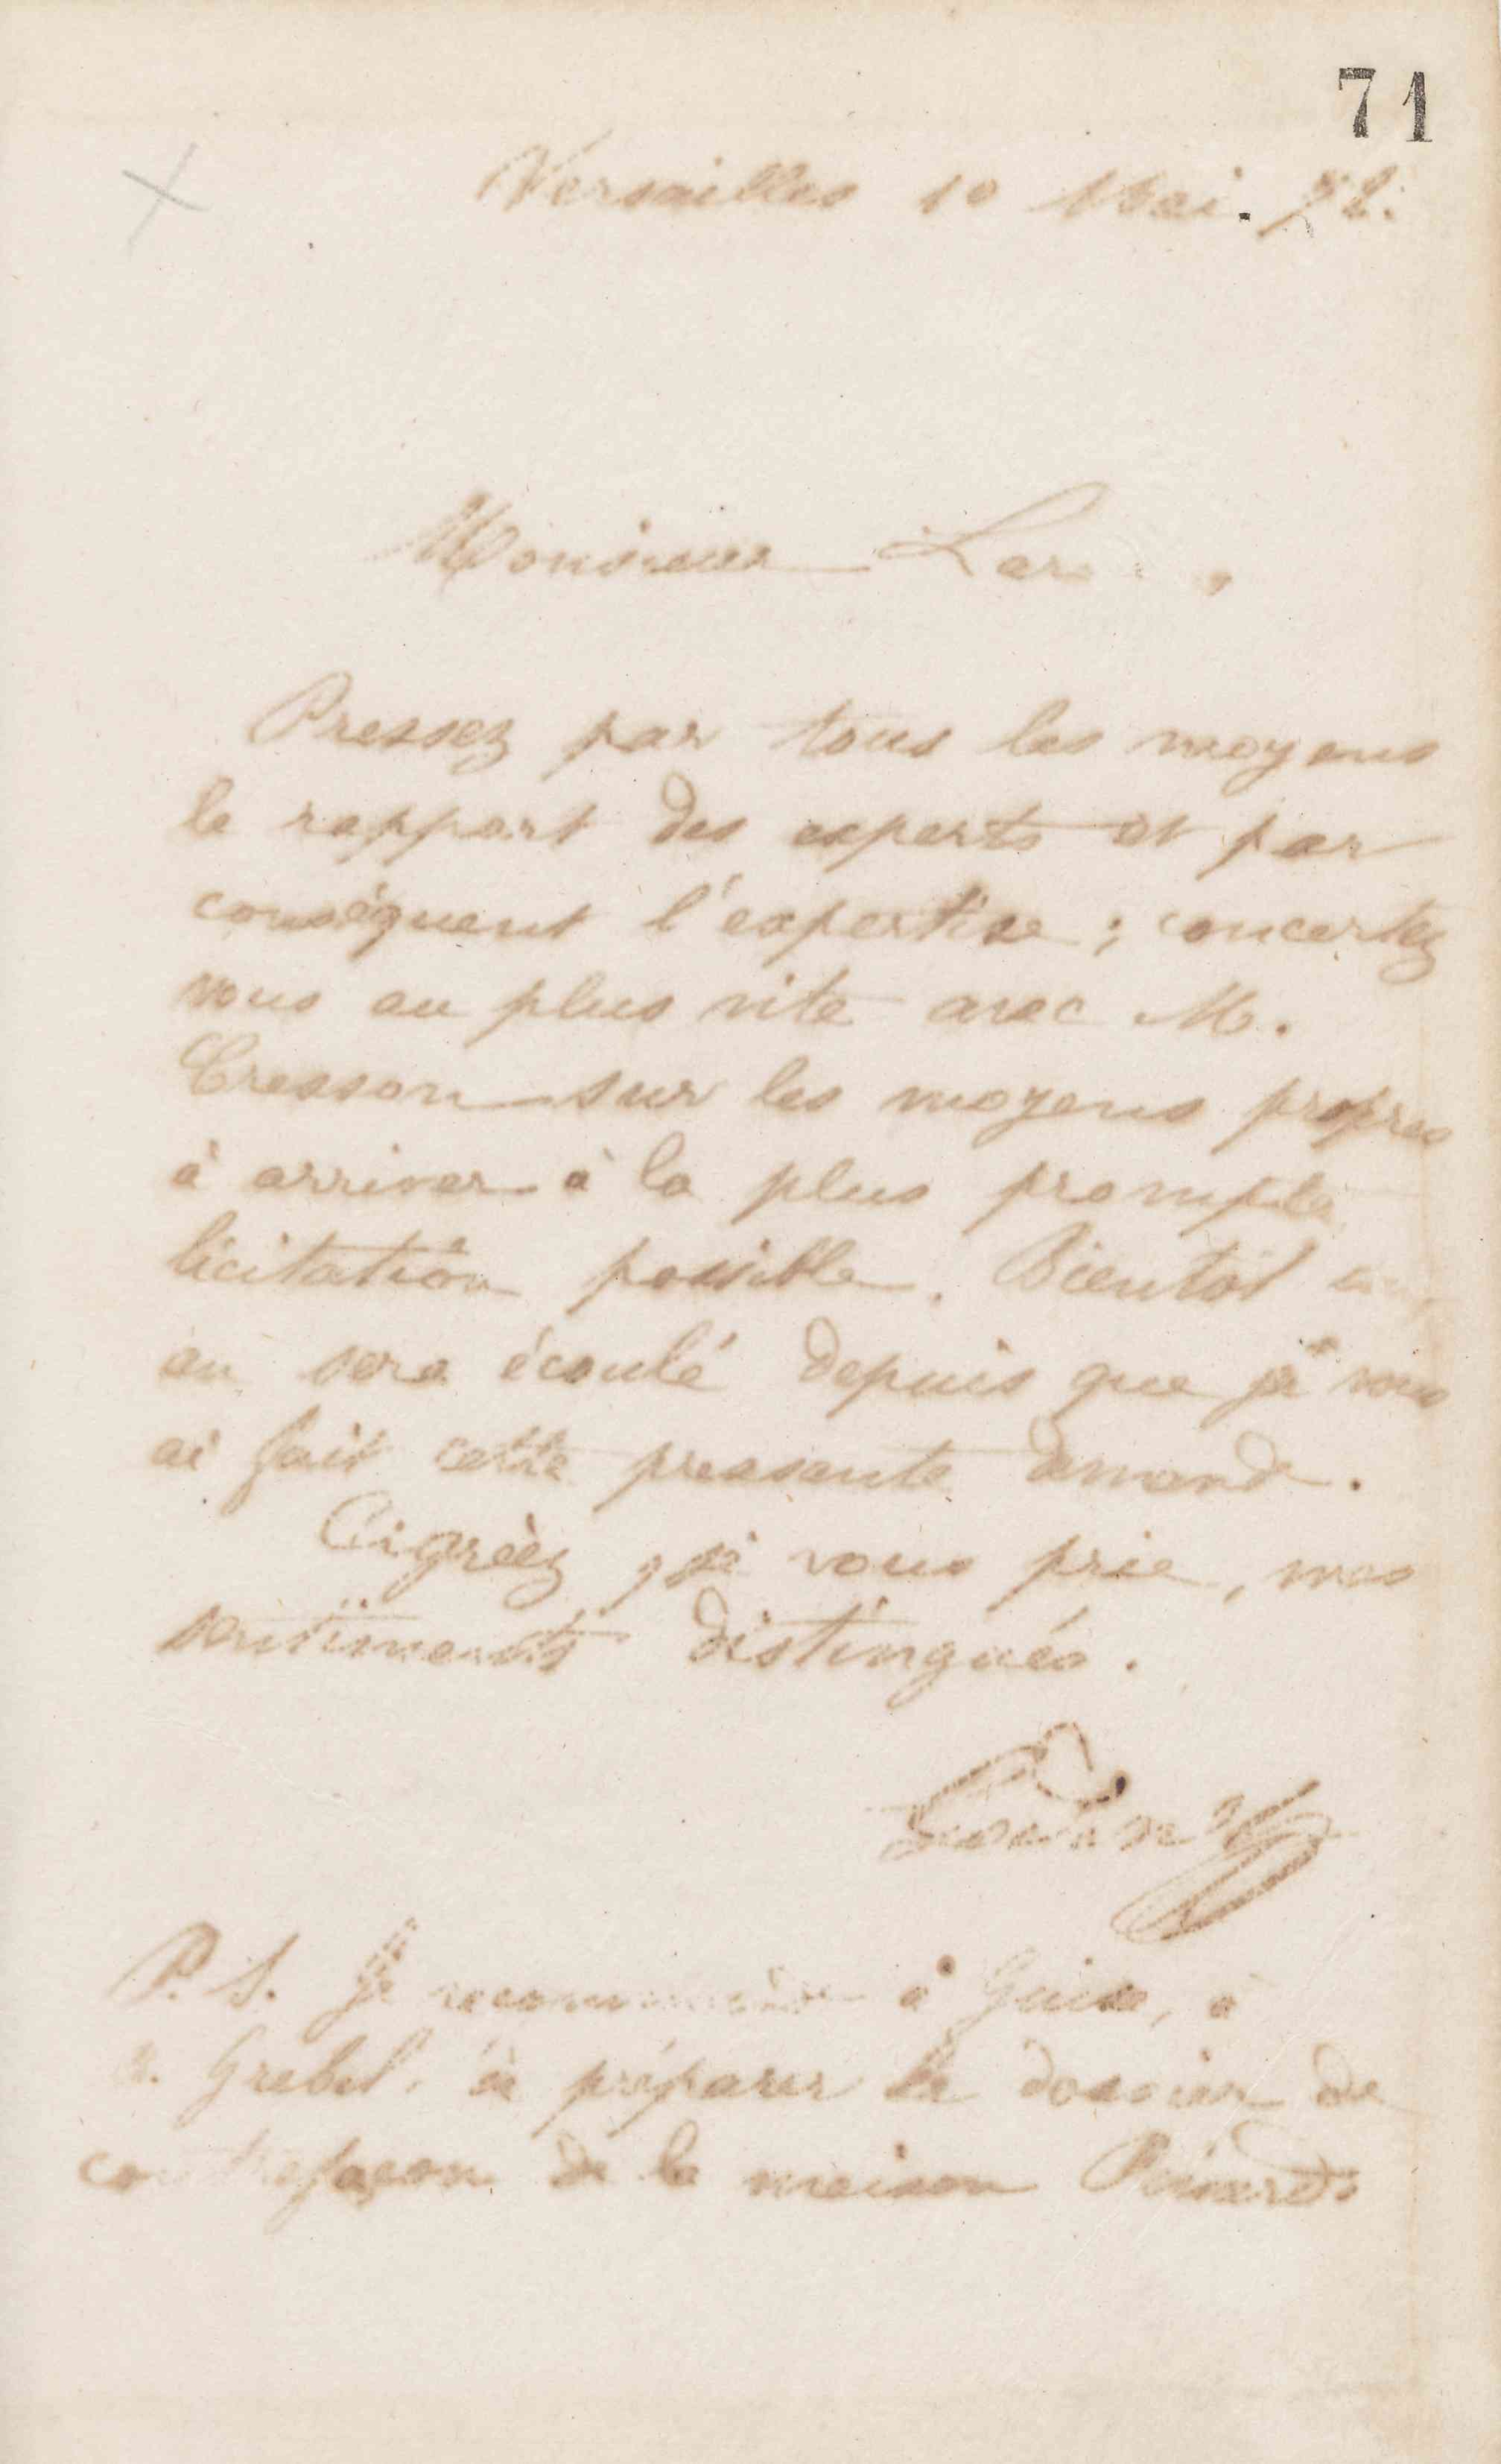 71
Versailles 10 Mai. 72.
Monsieur
Pressez par tous les moyens
le rapport des experts et par
conséquent l'expertise ; concertez
vous au plus vite avec M.
Cresson sur les moyens propres
à arriver à la plus prompte
licitation possible. Bientôt un
an sera écoulé depuis que je vous
ai fait cette pressante demande.
Agréez, je vous prie, mes
sentiments distingués.
Godin
P. S. Je recommande à Guise, à
M. Grebel, de préparer le dossier de
contrefaçon de la maison